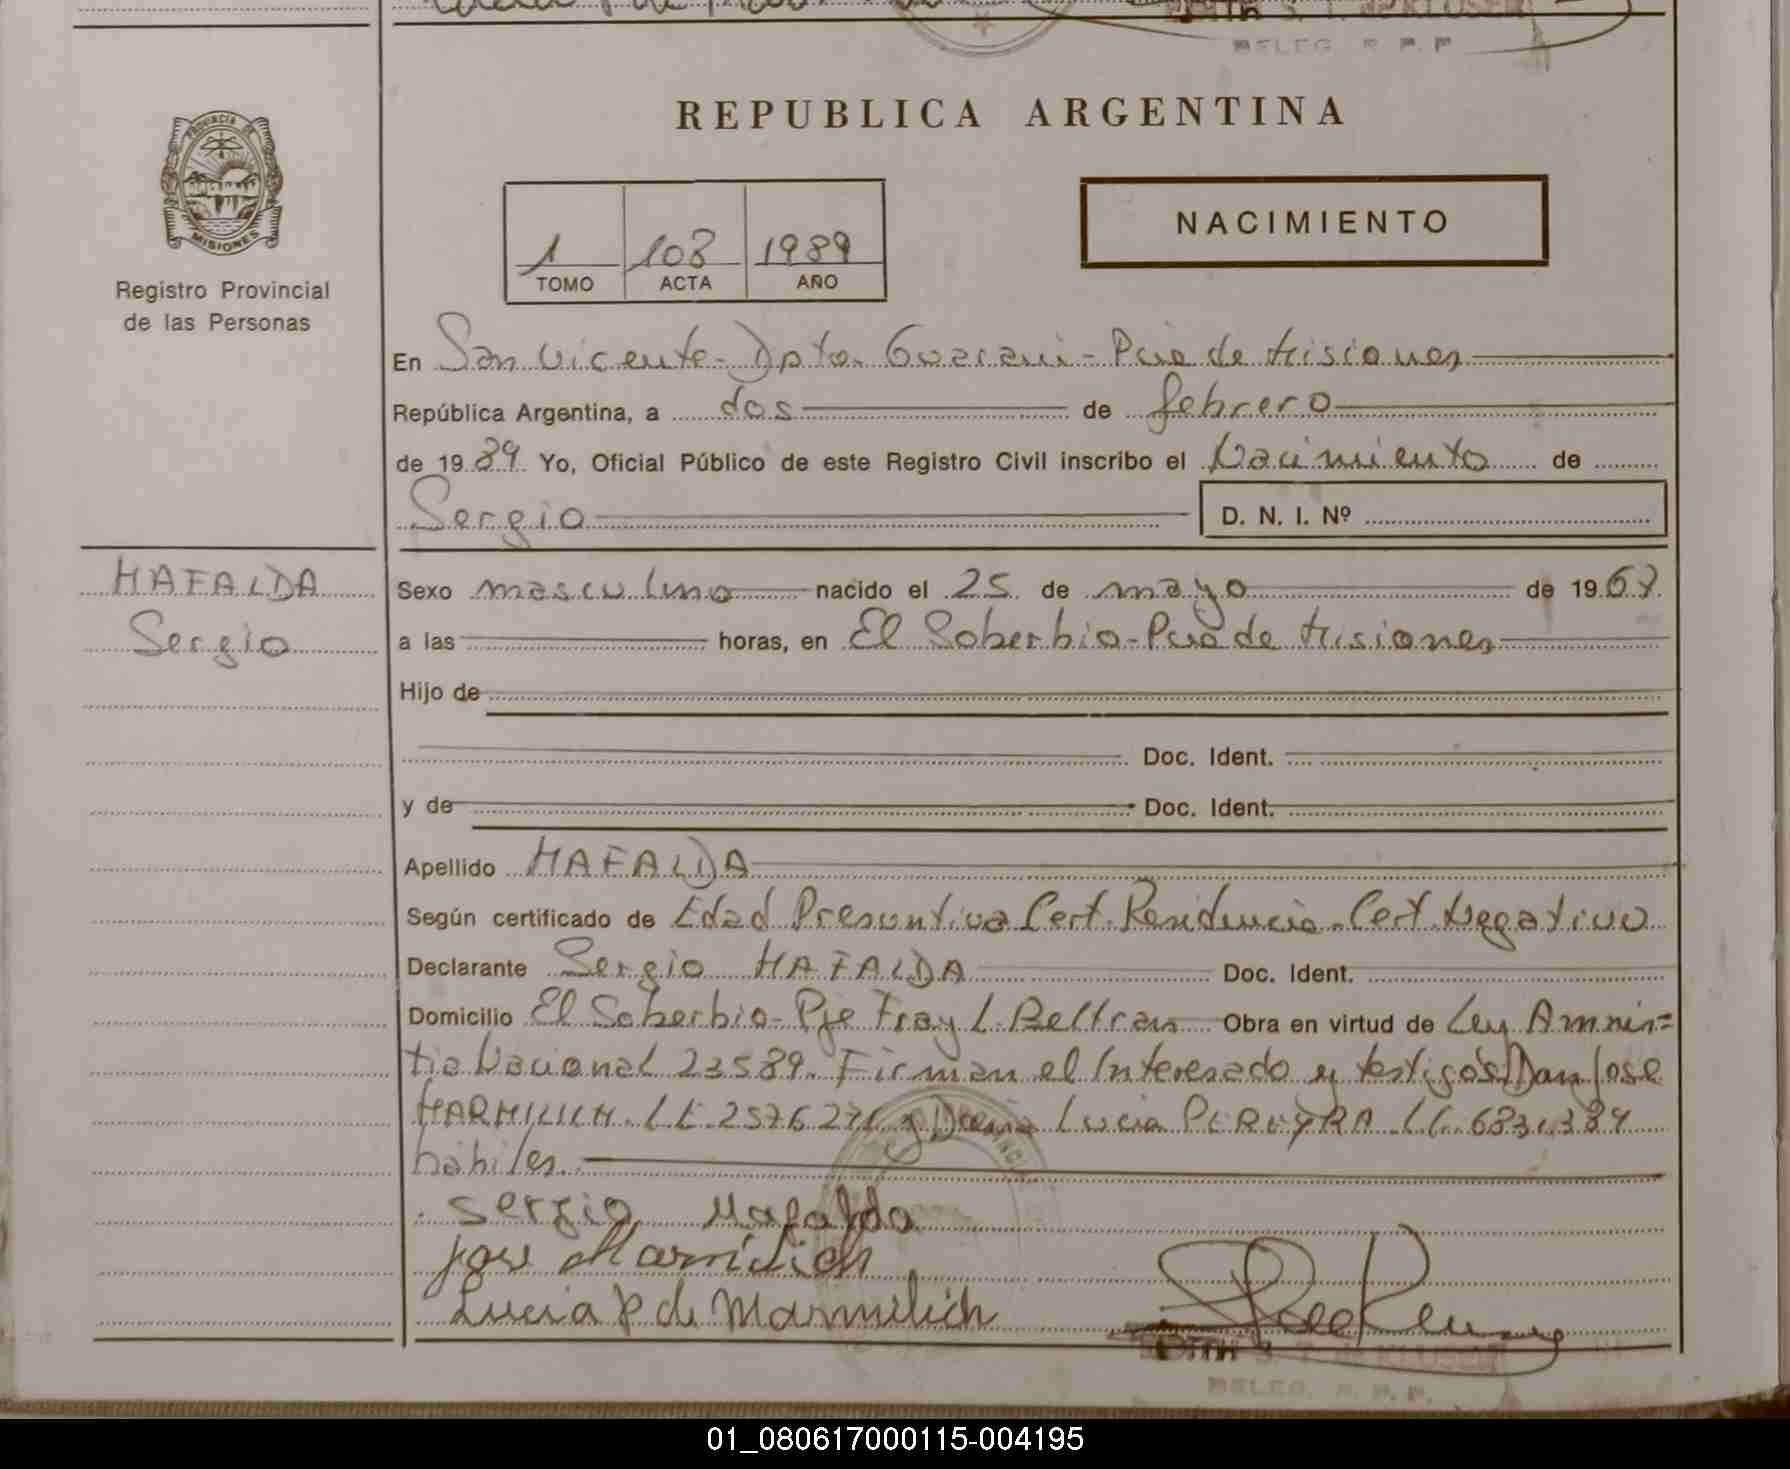 BELEG. R. P. P.
PROVINCIA DE
MISIONES
Registro Provincial
de las Personas
REPUBLICA ARGENTINA
1 108 1989
TOMO ACTA AÑO
NACIMIENTO
En San Vicente - Dpto. Guarani - Pcia de Misiones
República Argentina, a dos de febrero
de 1989 Yo, Oficial Público de este Registro Civil inscribo el Nacimiento de
Sergio D. N. I. Nº
MAFALDA
Sergio
Sexo masculino nacido el 25 de mayo de 1967
a las horas, en El Soberbio - Pcia de Misiones
Hijo de
Doc. Ident.
y de Doc. Ident.
Apellido MAFALDA
Según certificado de Edad Presuntiva Cert. Residencia - Cert. Negativo
Declarante Sergio MAFALDA Doc. Ident.
Domicilio El Soberbio - Pje Fray L. Beltran Obra en virtud de Ley Amnis=
tia Nacional 23589. Firman el Interesado y testigos Don Jose
MARMILICH. LE. y Doña Lucia PEREYRA LC.
habiles.
Sergio Mafalda
Jose Marmilich
Lucia P de Marmilich
EDITH S. T. de KLUSEN
BELEG. R. P. P.
01_080617000115-004195